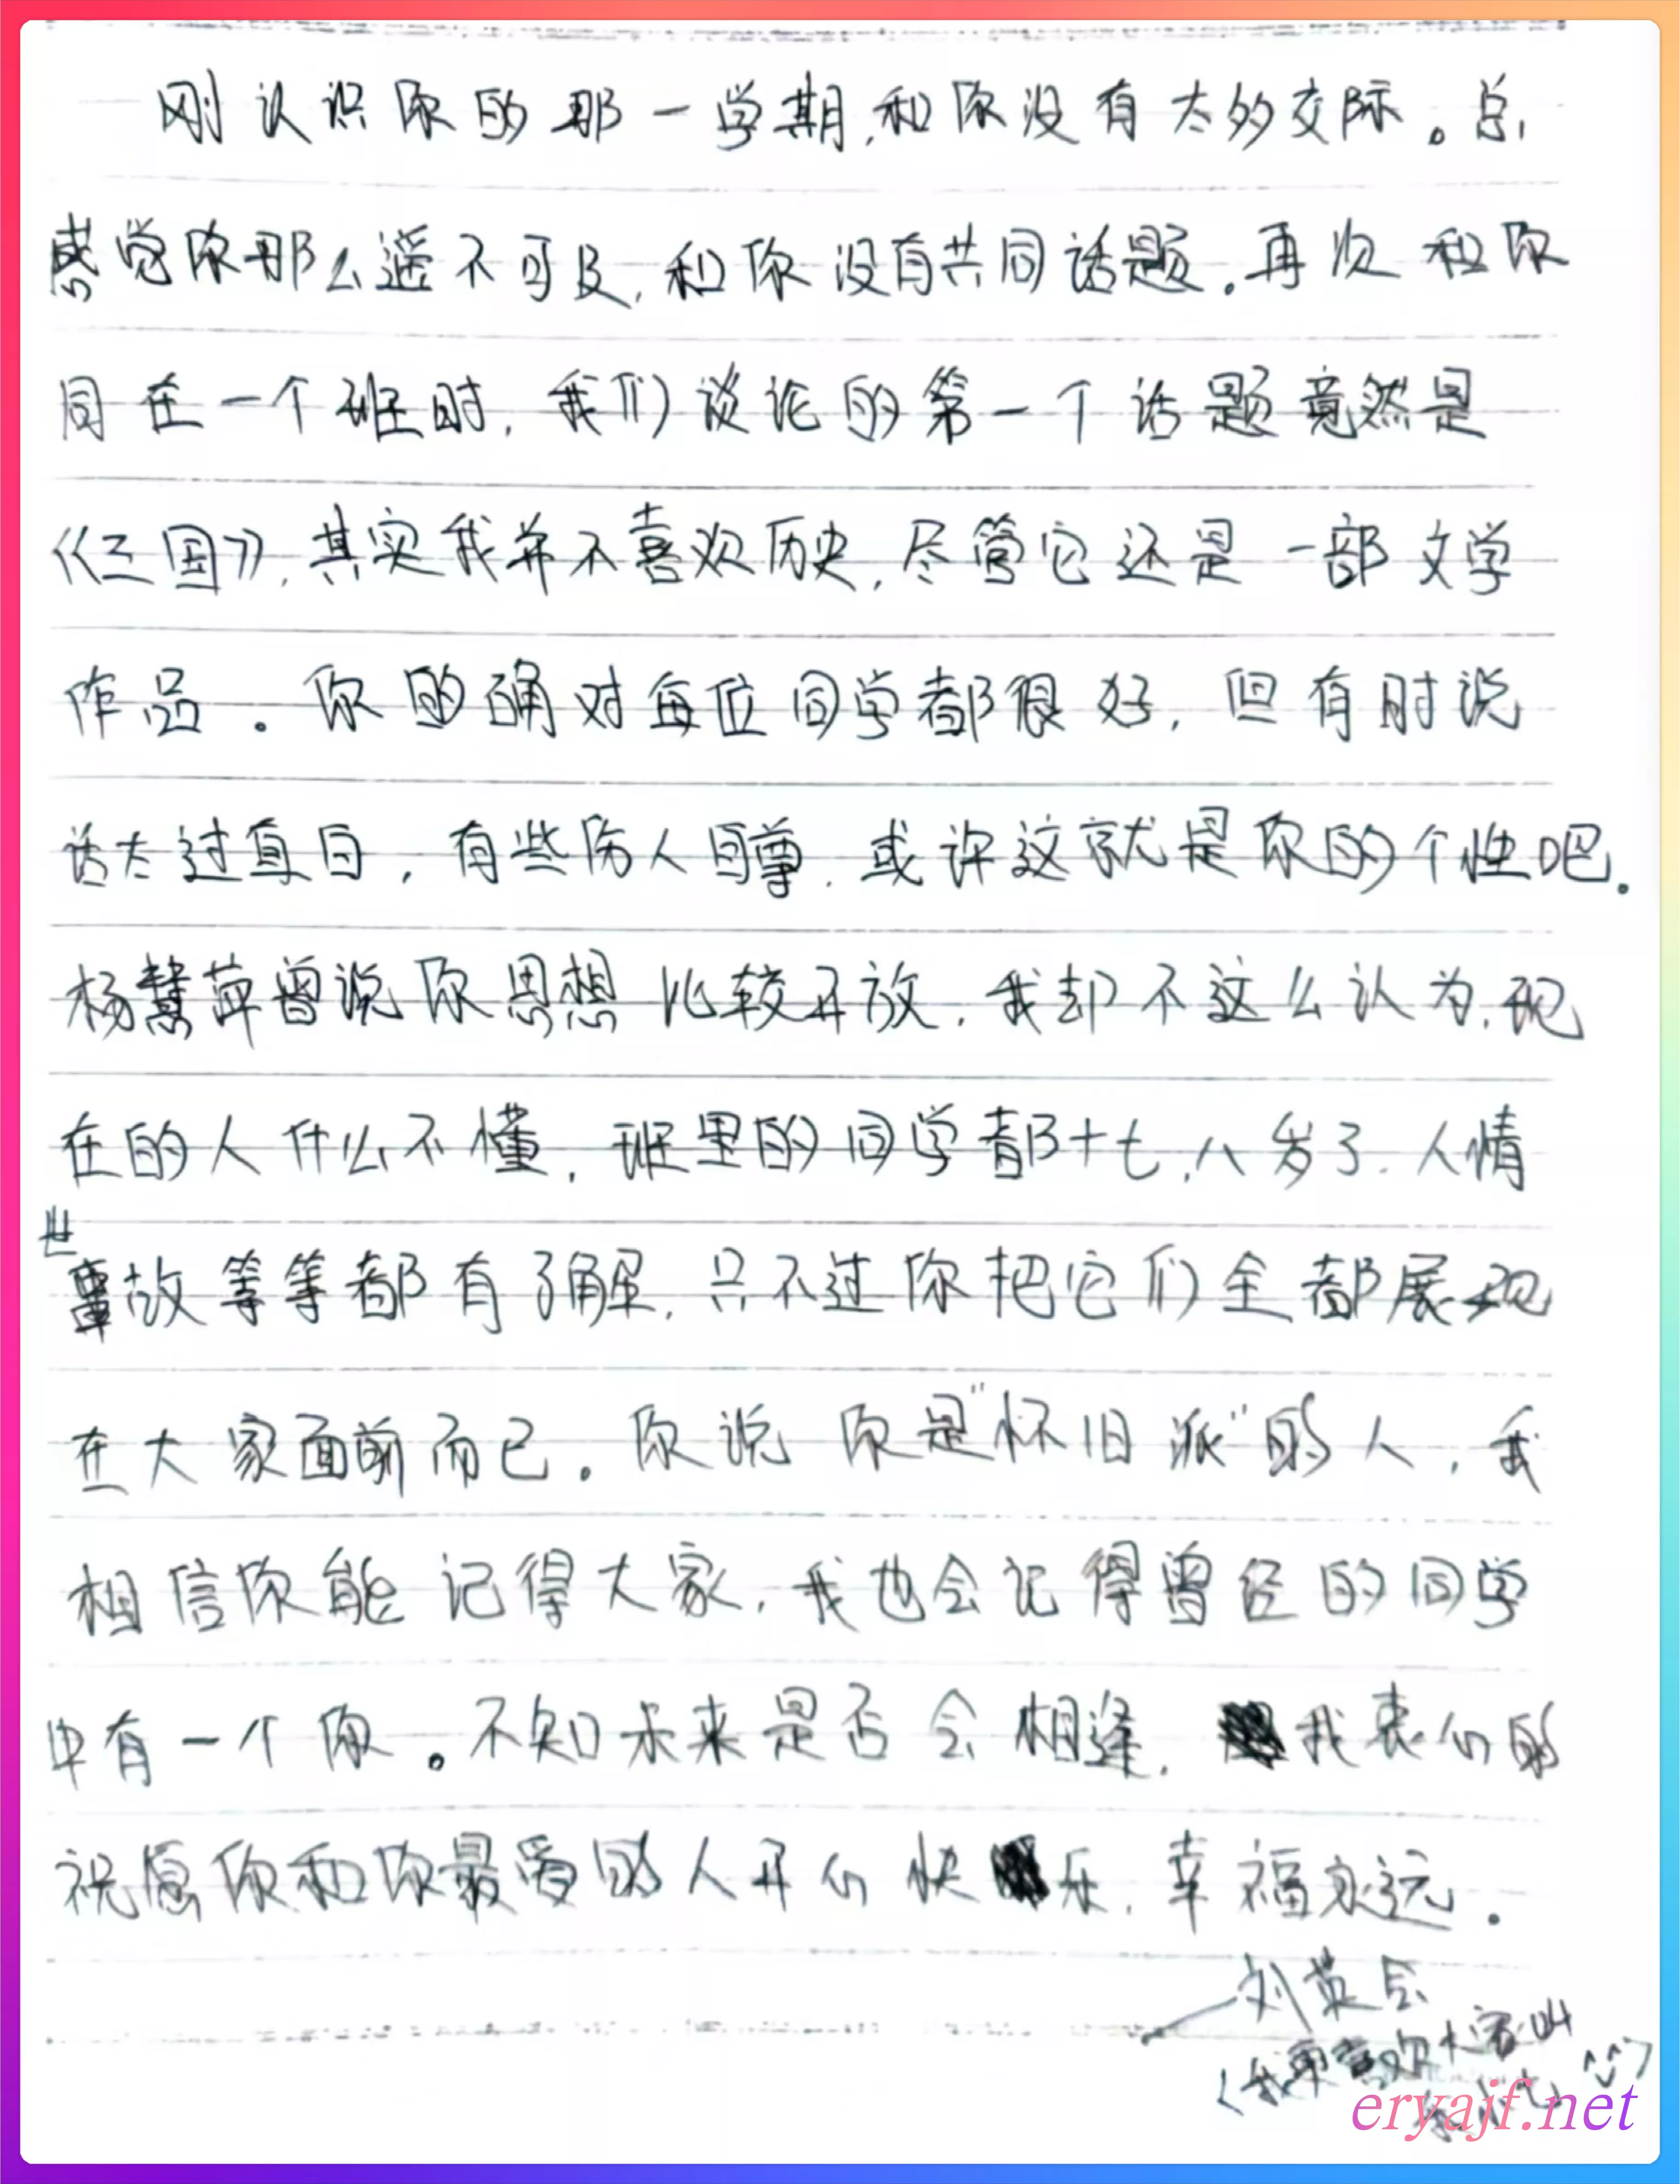 刚认识你的那一学期,和你没有太多交际。总
感觉你那么遥不可及,和你没有共同话题。再次和你
同在一个班时,我们谈论的第一个话题竟然是
《三国》,其实我并不喜欢历史,尽管它还是一部文学
作品。你的确对每位同学都很好,但有时说
话太过直白,有些伤人自尊,或许这就是你的个性吧。
杨慧萍曾说你思想比较开放,我却不这么认为,现
在的人什么不懂,班里的同学都十七,八岁了,人情
世故等等都有了解,只不过你把它们全都展现
在大家面前而已。你说你是"怀旧派"的人,我
相信你能记得大家,我也会记得曾经的同学
中有一个你。不知未来是否会相逢,我衷心的
祝愿你和你最爱的人开心快乐,幸福永远。
——刘英会
(我更喜欢大家叫
eryajf.net